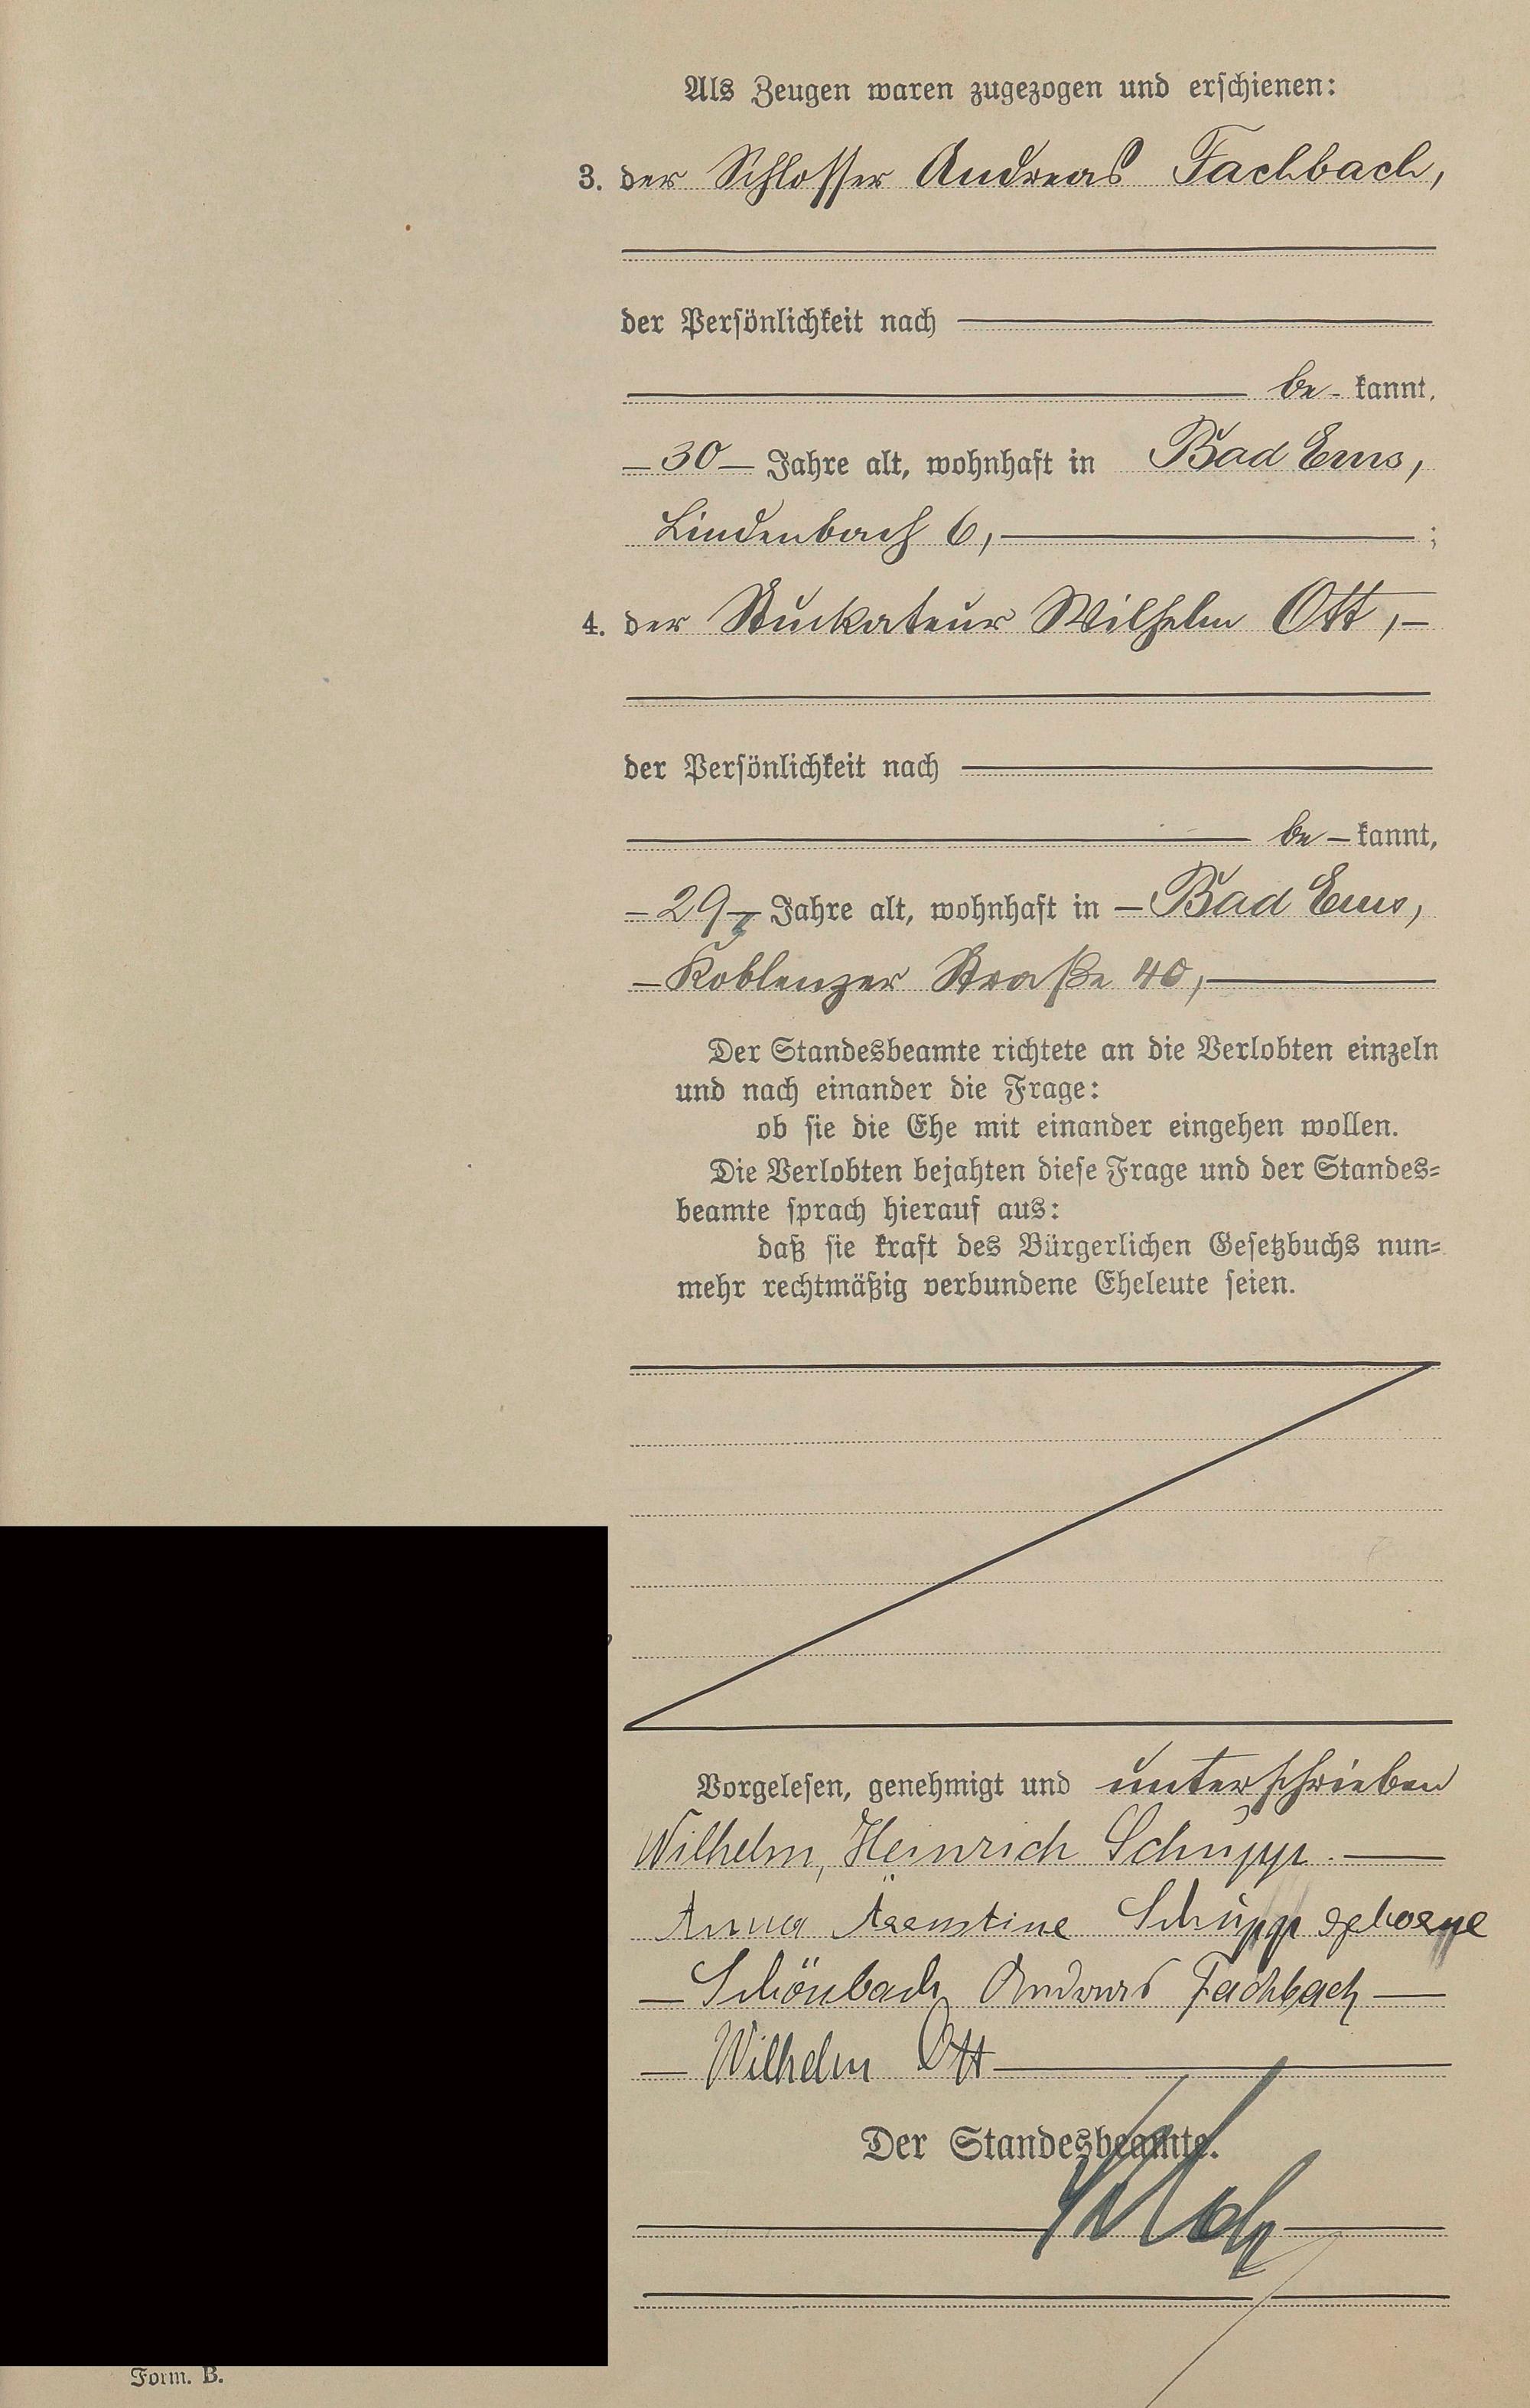 Als Zeugen waren zugezogen und erschienen:
3. der Schlosser Andreas Fachbach,
der Persönlichkeit nach
be- kannt,
– 30 – Jahre alt, wohnhaft in Bad Ems,
Lindenbach 6, ;
4. der Stuckateur Wilhelm Ott, –
der Persönlichkeit nach
be – kannt,
– 29 – Jahre alt, wohnhaft in – Bad Ems,
– Koblenzer Straße 40,
Der Standesbeamte richtete an die Verlobten einzeln
und nach einander die Frage:
ob sie die Ehe mit einander eingehen wollen.
Die Verlobten bejahten diese Frage und der Standes-
beamte sprach hierauf aus:
daß sie kraft des Bürgerlichen Gesetzbuchs nun-
mehr rechtmäßig verbundene Eheleute seien.
Vorgelesen, genehmigt und unterschrieben
Wilhelm, Heinrich Schupp. –
Anna Schupp geborne
– Schönbach Andreas Fachbach –
– Wilhelm Ott –
Der Standesbeamte.
Form. B.